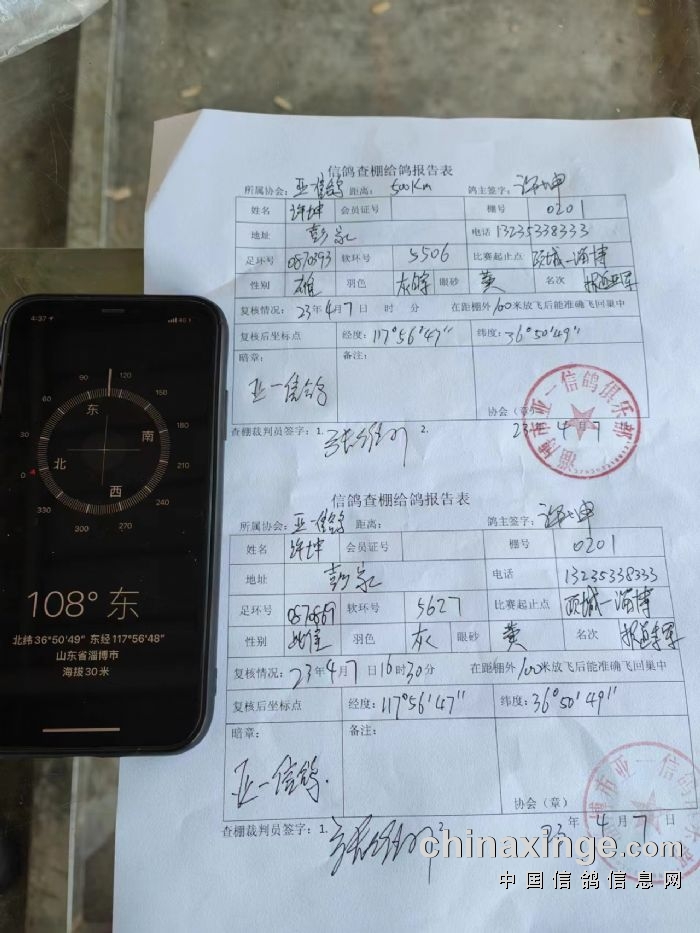 4:37
4G
120
90
150
60
东
180
30
南
北
210
0
西
240
330
300
270
108° 东
北纬 36°50'49" 东经 117°56'48"
山东省淄博市
海拔 30 米
信鸽查棚给鸽报告表
所属协会: 亚一信鸽 距离: 500Km 鸽主签字:
姓名 许坤 会员证号 棚号 0201
地址 彭家 电话 13235338333
足环号 0870393 软环号 5506 比赛起止点 项城一淄博
性别 雄 羽色 灰 眼砂 黄 名次 报道亚军
复核情况: 23年4月7日 时 分 在距棚外100米放飞后能准确飞回巢中
复核后坐标点 经度: 117°56'47" 纬度: 36°50'49"
暗章: 备注:
亚一信鸽
协会(章)
23 年 4 月 7
查棚裁判员签字: 1. 2.
淄博市亚一信鸽俱乐部
信鸽查棚给鸽报告表
所属协会: 亚一信鸽 距离: 鸽主签字:
姓名 许坤 会员证号 棚号 0201
地址 彭家 电话 13235338333
足环号 0870869 软环号 5627 比赛起止点 项城一淄博
性别 雌 羽色 灰 眼砂 黄 名次 报道季军
复核情况: 23年4月7日16时30分 在距棚外100米放飞后能准确飞回巢中
复核后坐标点 经度: 117°56'47" 纬度: 36°50'49"
暗章: 备注:
亚一信鸽.
协会(章)
23 年 4 月 7 日
查棚裁判员签字: 1. 2
博市亚一信鸽
chinaxinge.com
中国信鸽信息网